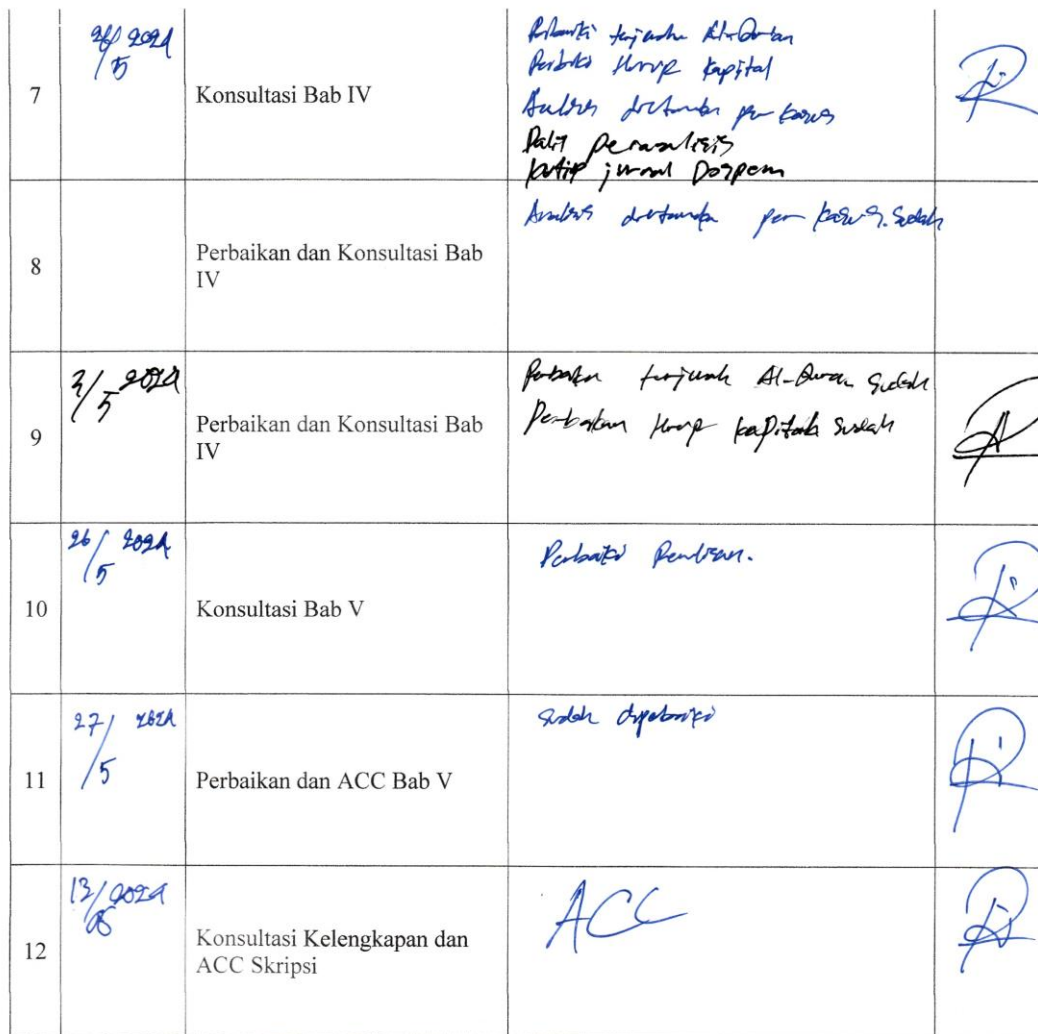 2024
5
7
Konsultasi Bab IV
Perbaiki terjemah Al-Quran
Perbaiki Huruf Kapital
Analisis per kasus
jurnal Dospem
8
Perbaikan dan Konsultasi Bab
IV
Analisis per kasus. Sudah
2024
5
9
Perbaikan dan Konsultasi Bab
IV
Perbaikan terjemah Al-Quran Sudah
Perbaikan Huruf Kapital Sudah
26/ 2024
5
10
Konsultasi Bab V
Perbaiki Penulisan.
27/ 2024
5
11
Perbaikan dan ACC Bab V
Sudah diperbaiki
13/ 2024
12
Konsultasi Kelengkapan dan
ACC Skripsi
ACC